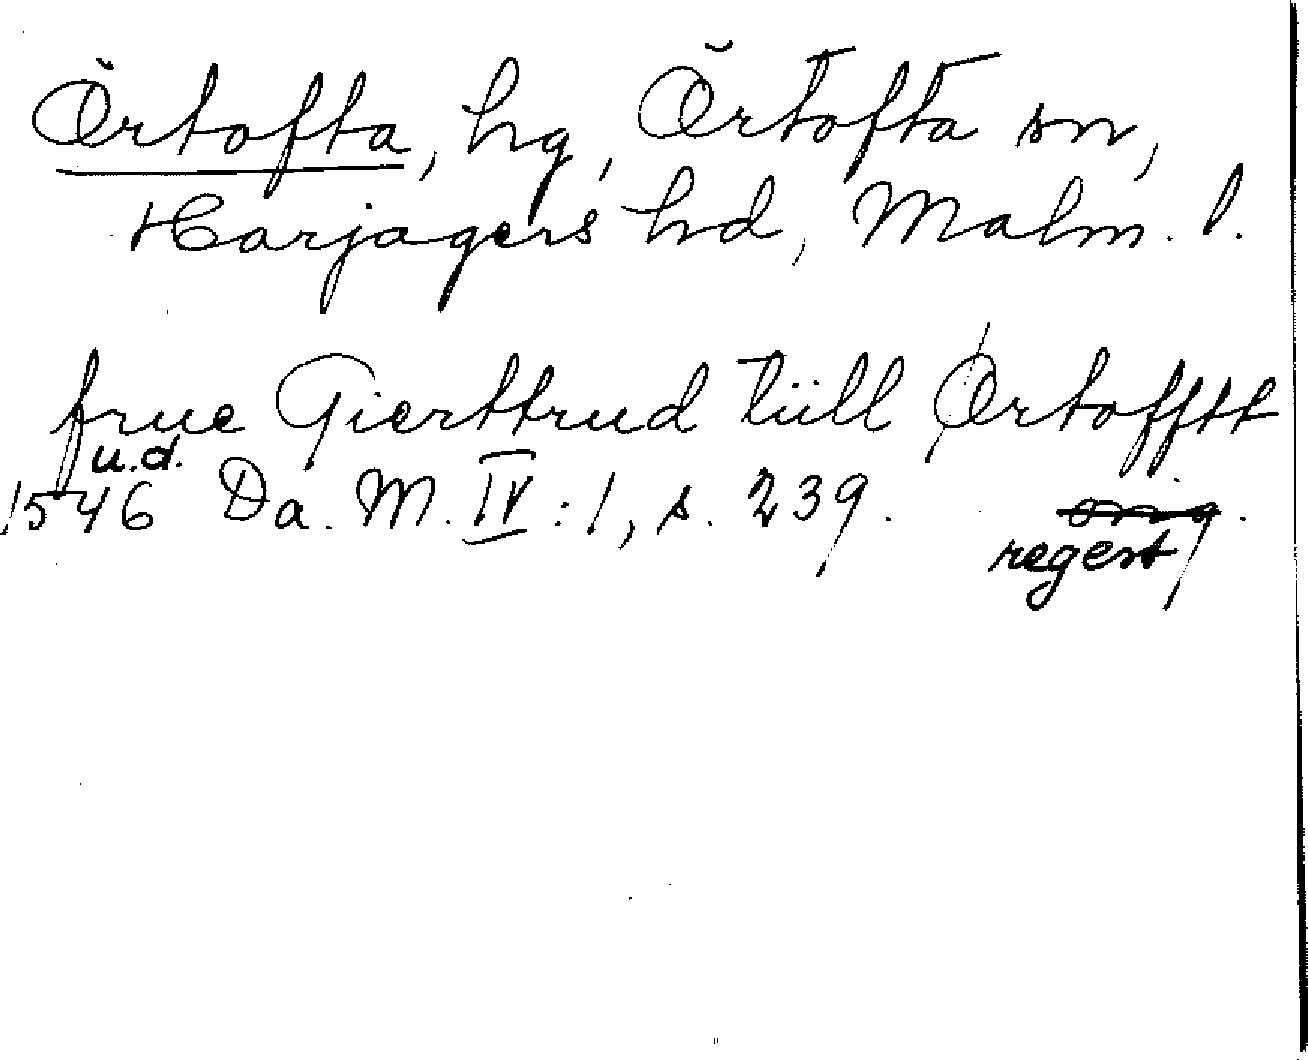 Örtofta, hg, Örtofta sn,
Harjagers hd, Malm. l.
frue Gierttrud tiill Ørtofftt
u.d.
1546 Da. M. IV : 1, s. 239. org.
regest